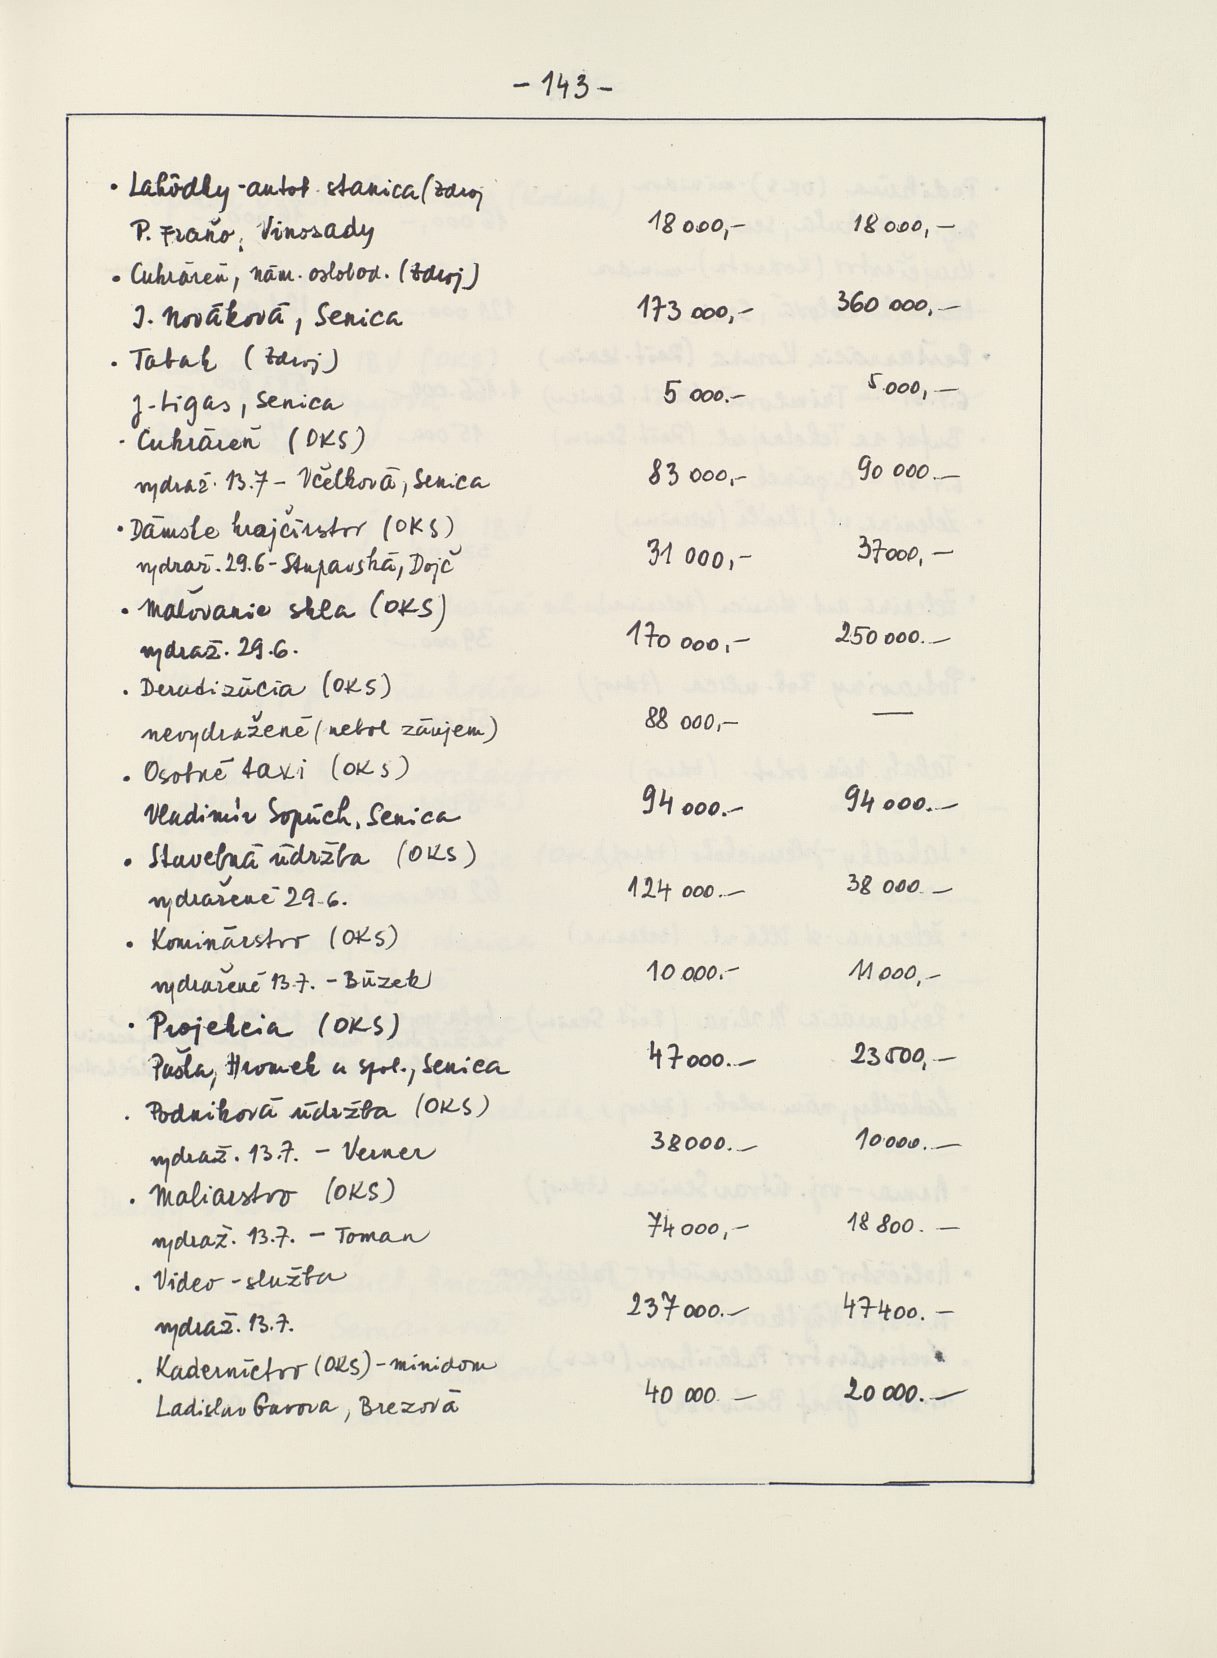 - 143 -
• Lahôdky - autob. stanica (Zdroj
P. Fraňo, Vinosady 18 000,- 18 000,-
• Cukráreň, nám. oslobod. (Zdroj)
J. Nováková, Senica 173 000,- 360 000,-
• Tabak (Zdroj)
J. Ligas, Senica 5 000.- 5 000,-
• Cukráreň (OKS)
vydraž. 13.7 - Včelková, Senica 83 000,- 90 000.-
• Dámske krajčírstvo (OKS)
vydraž. 29.6 - Stupavská, Dojč 31 000,- 37000,-
• Maľovanie skla (OKS)
vydraž. 29.6. 170 000,- 250 000.-
• Deratizácia (OKS)
nevydražené (nebol záujem) 88 000,- —
• Osobné taxi (OKS)
Vladimír Sopúch, Senica 94 000.- 94 000.-
• Stavebná údržba (OKS)
vydražené 29.6. 124 000.- 38 000.-
• Kominárstvo (OKS)
vydražené 13.7. - Búzek 10 000.- 11 000,-
• Projekcia (OKS)
Pašla, Hromek a spol., Senica 47000.- 23500,-
• Podniková údržba (OKS)
vydraž. 13.7. - Verner 38000.- 10000.-
• Maliarstvo (OKS)
vydraž. 13.7. - Toman 74 000,- 18 800.-
• Video - služba
vydraž. 13.7. 237 000.- 47400.-
• Kaderníctvo (OKS) - minidom
Ladislav Gavora, Brezová 40 000 - 20 000.-